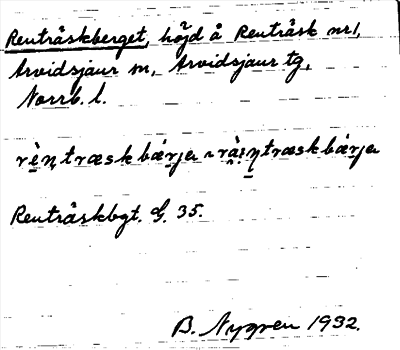 Renträskberget, höjd å Renträsk nr 1,
Arvidsjaur sn, Arvidsjaur tg,
Norrb. l.
rὲn̥træskbárja ~ràin̥træskbárja
Renträskbgt. G. 35.
B. Nygren 1932.